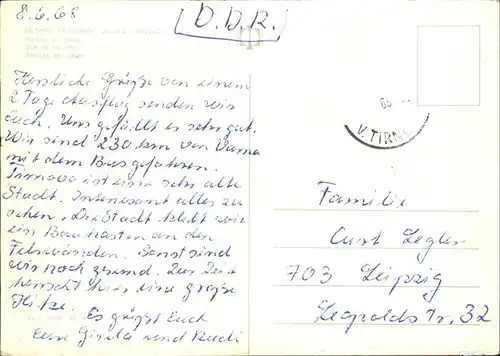 8.6.68
D.D.R.
Herzliche Grüße von einem
2 Tage Ausflug senden wir
Euch. Uns gefällt es sehr gut.
Wir sind 230 km von Varna
mit dem Bus gefahren.
Tirnovo ist eine sehr alte
Stadt. Interesant alles zu
sehen. Die Stadt klebt wie
ein Baukasten an den
Felswänden. Sonst sind
wir noch gesund. Zur Zeit
herrscht hier eine große
Hitze. Es grüßt Euch
Eure Gisela und Rudi
V. TIRN
Familie
Curt Zegler
703 Leipzig
Leopoldstr. 32